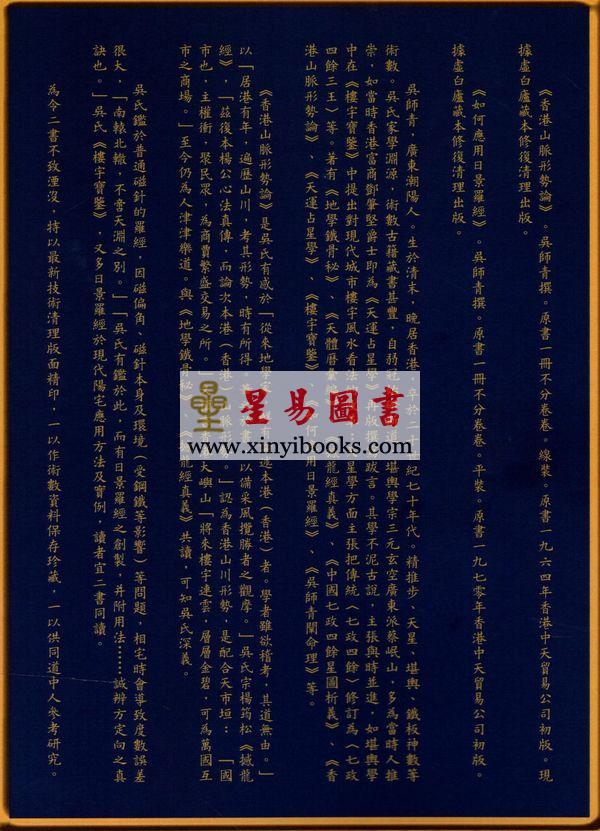 《香港山脈形勢論》。吳師青撰。原書一冊不分卷卷。線裝。原書一九六四年香港中天貿易公司初版。現
據虛白廬藏本修復清理出版。
《如何應用日景羅經》。吳師青撰。原書一冊不分卷卷。平裝。原書一九七零年香港中天貿易公司初版。
據虛白廬藏本修復清理出版。
吳師青,廣東潮陽人。生於清末,晚居香港,卒於二 世紀七十年代。精推步、天星、堪輿、鐵板神數等
術數。吳氏家學淵源,術數古籍藏書甚豐,自弱冠 道 堪輿學宗三元玄空廣東派蔡岷山,多為當時人推
崇,如當時香港富商鄧肇堅爵士即為《天運占星學》再版撰 跋言。其學不泥古說,主張與時並進,如堪輿學
中在《樓宇寶鑒》中提出對現代城市樓宇風水看法 星學方面主張把傳統〈七政四餘〉修訂為〈七政
四餘三王〉等。著有《地學鐵骨秘》、《天體曆 龍經真義》、《中國七政四餘星圖析義》、《香
港山脈形勢論》、《天運占星學》、《樓宇寶鑒》、《 何 用日景羅經》、《吳師青開命理》等。
《香港山脈形勢論》是吳氏有感於「從來地學 述本港(香港)者。學者雖欲稽考,其道無由。」
以「居港有年,遍歷山川,考其形勢,時有所得。 書 以備采風攬勝者之觀摩。」吳氏宗楊筠松《撼龍
經》,「茲復本楊公心法真傳,而論次本港(香港)山脈形 。」認為香港山川形勢,是配合天市垣:「國
市也,主權衡,聚民眾,為商賈繁盛交易之所。」 香 大嶼山「將來樓宇連雲,層層金碧,可為萬國互
市之商場。」至今仍為人津津樂道。與《地學鐵骨秘》《 龍經真義》共讀,可知吳氏深義。
吳氏鑑於普通磁針的羅經,因磁偏角、磁針本身及環境(受鋼鐵等影響)等問題,相宅時會導致度數誤差
很大,「南轅北轍,不啻天淵之別。」「吳氏有鑑於此,而有日景羅經之創製,并附用法……誠辨方定向之真
訣也。」吳氏《樓宇寶鑒》,又多日景羅經於現代陽宅應用方法及實例,讀者宜二書同讀。
為令二書不致湮沒,特以最新技術清理版面精印,一以作術數資料保存珍藏,一以供同道中人參考研究。
星易圖書
www.xinyibooks.com